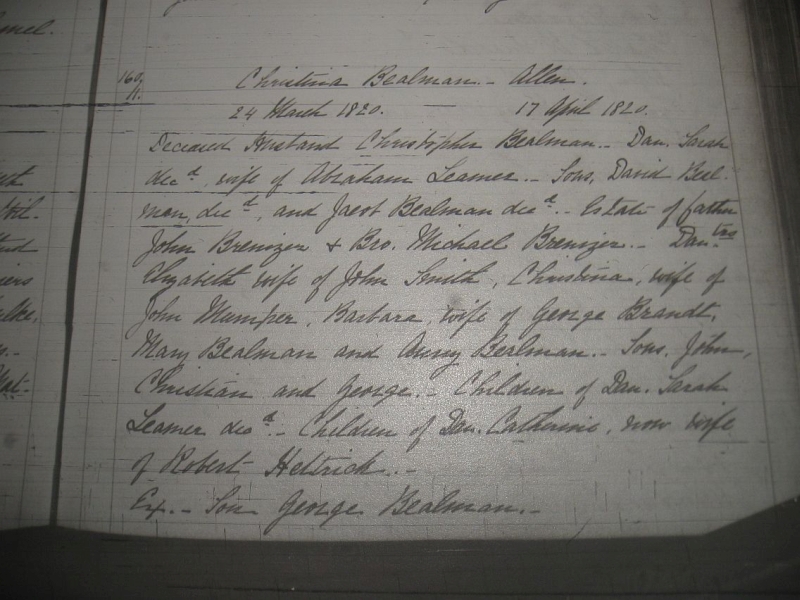 mel.
160/11.
Christina Bealman. - Allen.
24 March 1820. — 17 April 1820.
Deceased Husband Christopher Bealman. - Dau. Sarah
decd, wife of Abraham Leamer. - Sons, David Beal-
man, decd, and Jacob Bealman decd. - Estate of father
John Brenizer & Bro. Michael Brenizer. - Daus.
Elizabeth wife of John Smith, Christina, wife of
John Mumper, Barbara, wife of George Brandt,
Mary Bealman and Anny Bealman. - Sons, John,
Christian and George. - Children of Dau. Sarah
Leamer decd. - Children of Dau. Catherine, now wife
of Robert Hettrick. -
Ex. - Son George Bealman. -